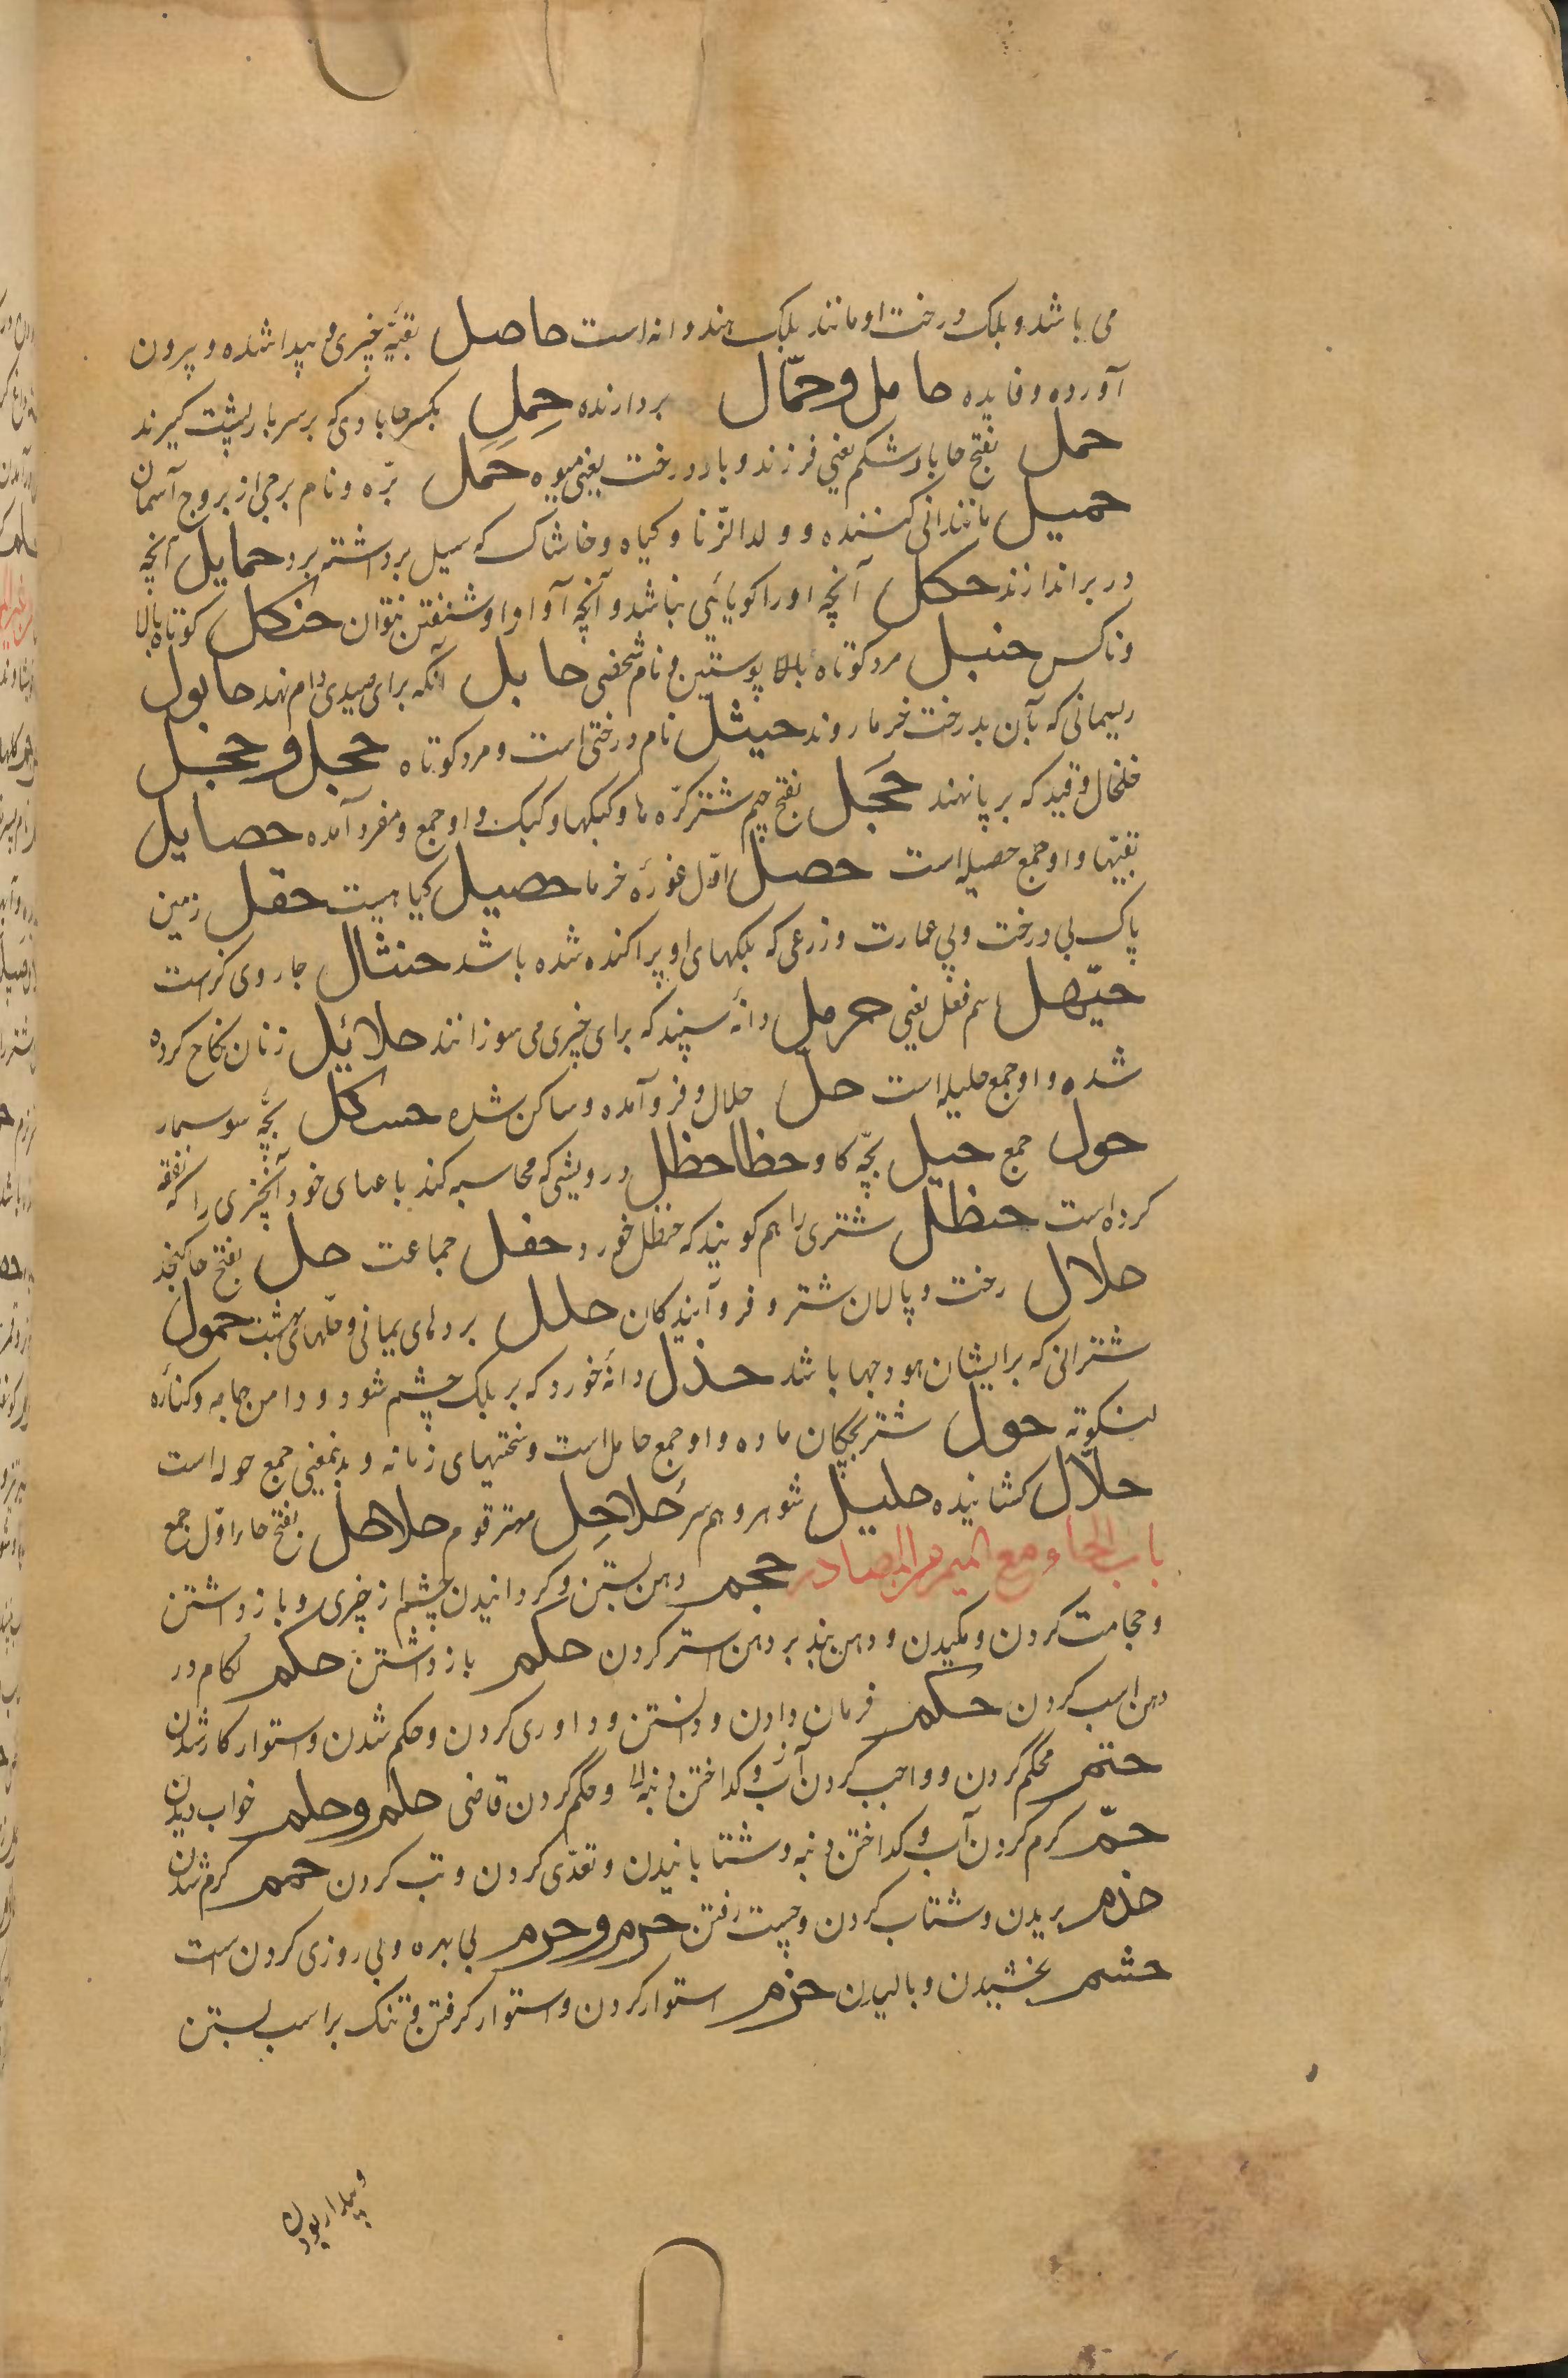 می باشد و بلک درخت او مانند بلک هندوانه است حاصل بقیّه چیزی و پیدا شده و پرون
آورده و فایده حامل و حمّال بردارنده حِمِل بکسر حا باری که بر سر یا بر پشت کیرند
حمل بفتح حا بار شکم یعنی فرزند و بار درخت یعنی میوه حَمَل برّه و نام برجی از بروج آسمان
حمیل مانند انی کننده و ولد الزّنا و کیاه و خاشاک که سیل برداشته برد حمایل آنچه
در بر اندازند حکل آنچه او را کویائی نباشد و آنچه آواز او شنفتن نتوان حنکل کوتاه بالا
و ناکس حنبل مرد کوتاه بالا و پوستین و نام شخصی حابل آنکه برای صیدی دام نهد حابول
ریسمانی که بآن بدرخت خرما روند حیثل نام درختی است و مرد کوتاه حجل و حجل
خلخال و قید که بر پا نهند حَجَل بفتح جیم شتر کرّه ها و کبکها و کبک و او جمع و مفرد آمده حصایل
بقیّتها و او جمع حصیله است حصل اوّل غوره خرما حصیل کیاهیست حقل زمین
پاک بی درخت و بی عمارت و زرعی که بلکهای او پراکنده شده باشد حنثال جاروی کر است
حیّهل اسم فعل یعنی حرمل دانه سپند که برای چیزی می سوزانند حلائیل زنان نکاح کرده
شده و او جمع حلیله است حل حلال و فرو آمده و ساکن شده حسکل بچّه سوسمار
حول جمع حیل بچّه کاو حظا حظل درویشی که محاسبه کند با عیال خود آنچیزی را که نفقه
کرده است حنظل شتری را هم کویند که حنظل خورد حفل جماعت حل بفتح حا کنجد
حلال رخت و پالان شتر و فرو آیندکان حلل بردهای یمانی و حلّهای بهشت حمول
شترانی که بر ایشان هودجها باشد حذل دانه خورد که بر بلک چشم شود و دامن جامه و کناره
لنکوته حول شتر بچکان ماده و او جمع حامل است و سختیهای زمانه و بدینمعنی جمع حوله است
حلّال کشاینده حلیل شوهر و هم سر حُلاحِل مهتر قوم حلاهل بفتح حا را اوّل جمع
باب الحاء مع المیم من المصادر حجم دهن بستن و کردانیدن چشم از چیزی و باز داشتن
و حجامت کردن و مکیدن و دهن بند بر دهن استر کردن حکم باز داشتن حکم لکام در
دهن اسب کردن حکم فرمان دادن و دانستن و داوری کردن و حکم شدن و استوار کار شدن
حتم محکم کردن و واجب کردن و کداختن دنبه و حکم کردن قاضی حلم و حلم خواب دیدن
حمّ کرم کردن آب و کداختن دنبه و شتابانیدن و تعدّی کردن و تب کردن حمم کرم شدن
حذم بریدن و شتاب کردن و چست رفتن حرم و حرم بی بهره و بی روزی کردن است
حشم بخشیدن و بالیدن حزم استوار کردن و استوار کرفتن و تنک بر اسب بستن
و بیدار بودن